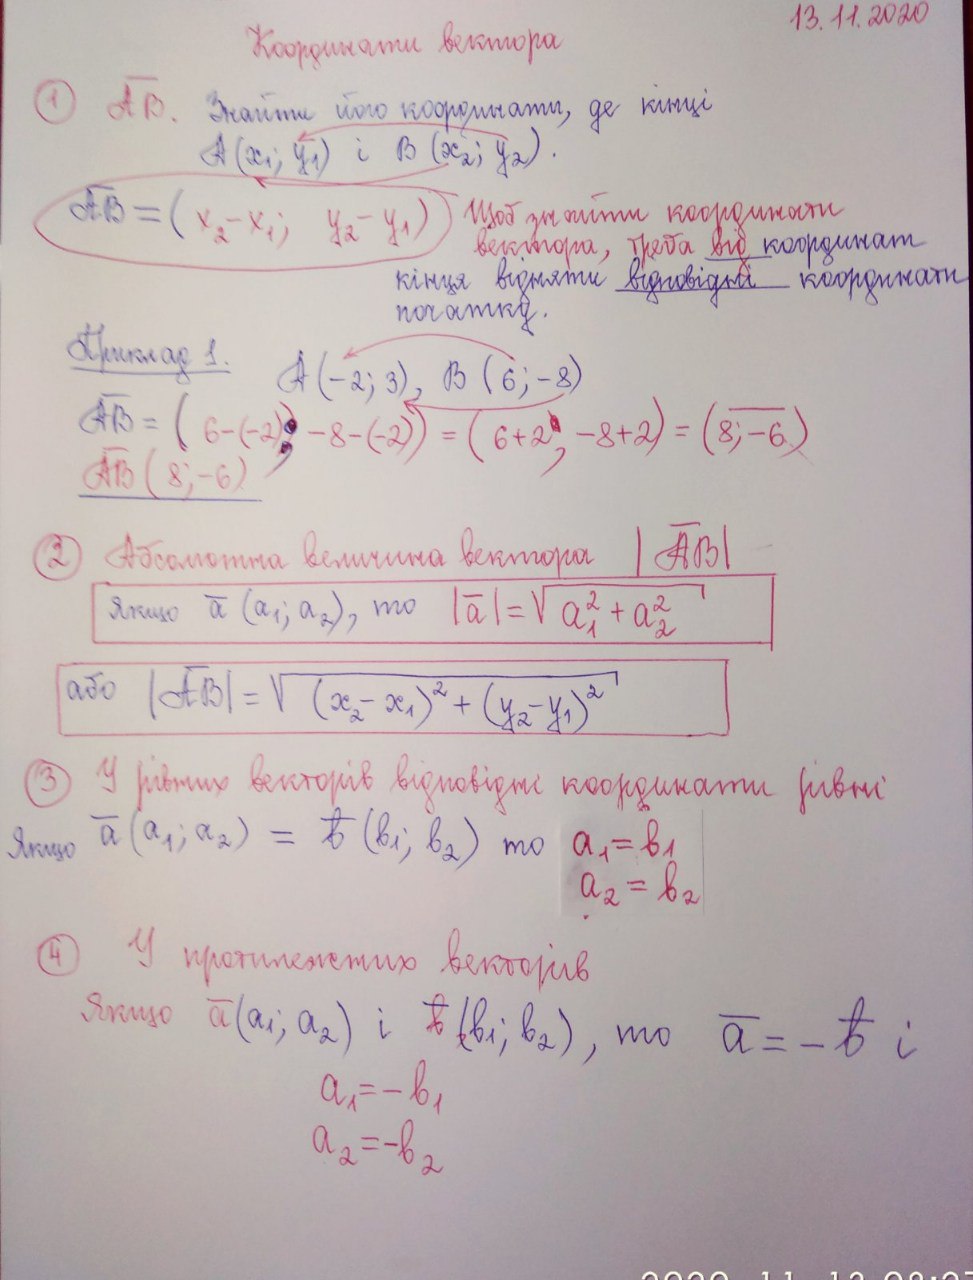 13.11.2020
Координати вектора
① A̅B̅. Знайти його координати, де кінці
A(x₁; y₁) і B(x₂; y₂).
A̅B̅ = (x₂ − x₁; y₂ − y₁) Щоб знайти координати
вектора, треба від координат
кінця відняти відповідні координати
початку.
Приклад 1. A(−2; 3), B(6; −8)
A̅B̅ = (6−(−2); −8−(−2)) = (6+2; −8+2) = (8; −6)
A̅B̅ (8; −6)
② Абсолютна величина вектора |A̅B̅|
Якщо a̅ (a₁; a₂), то |a̅| = √(a₁² + a₂²)
або |A̅B̅| = √((x₂−x₁)² + (y₂−y₁)²)
③ У рівних векторів відповідні координати рівні
Якщо a̅ (a₁; a₂) = b̅ (b₁; b₂) то a₁ = b₁
a₂ = b₂
④ У протилежних векторів
Якщо a̅(a₁; a₂) і b̅(b₁; b₂), то a̅ = −b̅ і
a₁ = −b₁
a₂ = −b₂